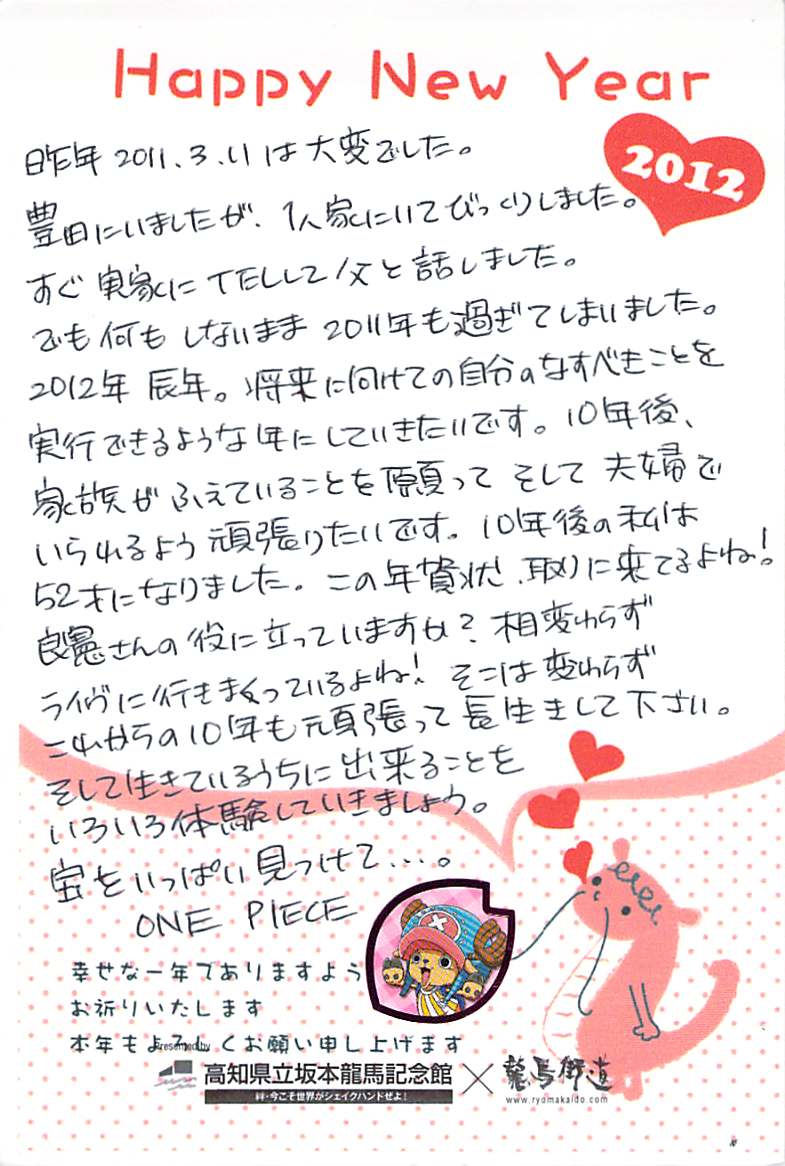 Happy New Year
2012
昨年 2011.3.11は大変でした。
豊田にいましたが、1人家にいてびっくりしました。
すぐ実家にTELして父と話しました。
でも何もしないまま 2011年も過ぎてしまいました。
2012年 辰年。将来に向けての自分のなすべきことを
実行できるような年にしていきたいです。10年後、
家族がふえていることを願って そして 夫婦で
いられるよう頑張りたいです。10年後の私は
52才になりました。この年賀状、取りに来てるよね!
良憲さんの役に立っていますか? 相変わらず
ライヴに行きまくっているよね! そこは変わらず
これからの10年も頑張って長生きして下さい。
そして生きているうちに出来ることを
いろいろ体験していきましょう。
宝をいっぱい見つけて…。
ONE PIECE
幸せな一年でありますよう
お祈りいたします
本年もよろしくお願い申し上げます
Presented by
高知県立坂本龍馬記念館 × 龍馬街道
絆・今こそ世界がシェイクハンドせよ!
www.ryomakaido.com